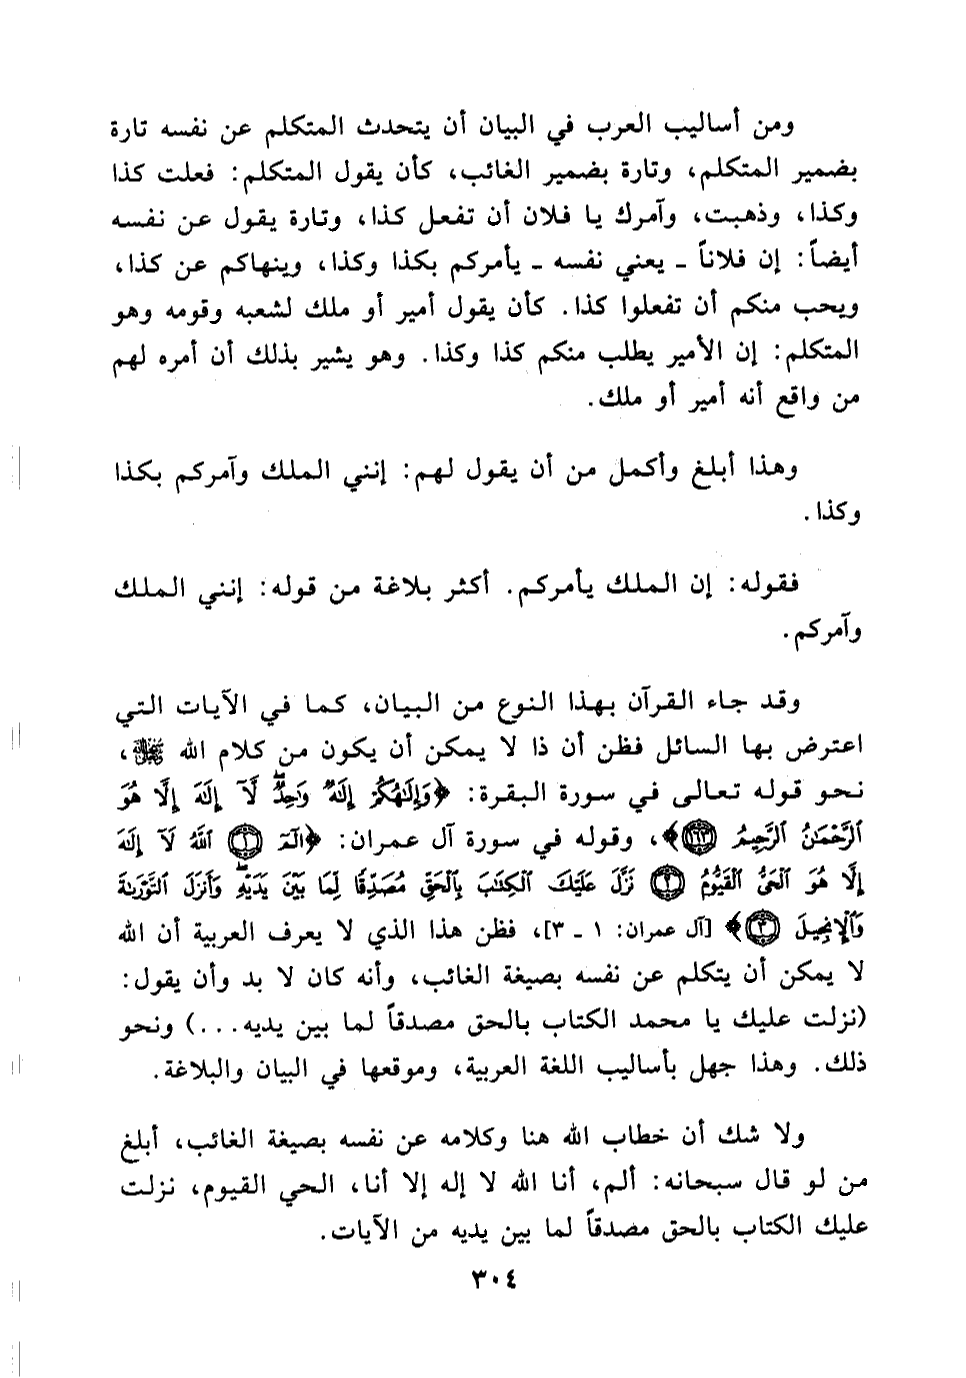 ومن أساليب العرب في البيان أن يتحدث المتكلم عن نفسه تارة
بضمير المتكلم، وتارة بضمير الغائب، كأن يقول المتكلم: فعلت كذا
وكذا، وذهبت، وآمرك يا فلان أن تفعل كذا، وتارة يقول عن نفسه
أيضاً: إن فلاناً ـ يعني نفسه ـ يأمركم بكذا وكذا، وينهاكم عن كذا،
ويحب منكم أن تفعلوا كذا. كأن يقول أمير أو ملك لشعبه وقومه وهو
المتكلم: إن الأمير يطلب منكم كذا وكذا. وهو يشير بذلك أن أمره لهم
من واقع أنه أمير أو ملك.
وهذا أبلغ وأكمل من أن يقول لهم: إنني الملك وآمركم بكذا
وكذا.
فقوله: إن الملك يأمركم. أكثر بلاغة من قوله: إنني الملك
وآمركم.
وقد جاء القرآن بهذا النوع من البيان، كما في الآيات التي
اعترض بها السائل فظن أن ذا لا يمكن أن يكون من كلام الله ﷻ،
نحو قوله تعالى في سورة البقرة: ﴿وَإِلَٰهُكُمْ إِلَٰهٌ وَٰحِدٌ ۖ لَّآ إِلَٰهَ إِلَّا هُوَ
ٱلرَّحْمَٰنُ ٱلرَّحِيمُ ١٦٣﴾، وقوله في سورة آل عمران: ﴿الٓمٓ ١ ٱللَّهُ لَآ إِلَٰهَ
إِلَّا هُوَ ٱلْحَىُّ ٱلْقَيُّومُ ٢ نَزَّلَ عَلَيْكَ ٱلْكِتَٰبَ بِٱلْحَقِّ مُصَدِّقًا لِّمَا بَيْنَ يَدَيْهِ وَأَنزَلَ ٱلتَّوْرَىٰةَ
وَٱلْإِنجِيلَ ٣﴾ [آل عمران: ١ ـ ٣]، فظن هذا الذي لا يعرف العربية أن الله
لا يمكن أن يتكلم عن نفسه بصيغة الغائب، وأنه كان لا بد وأن يقول:
(نزلت عليك يا محمد الكتاب بالحق مصدقاً لما بين يديه...) ونحو
ذلك. وهذا جهل بأساليب اللغة العربية، وموقعها في البيان والبلاغة.
ولا شك أن خطاب الله هنا وكلامه عن نفسه بصيغة الغائب، أبلغ
من لو قال سبحانه: ألم، أنا الله لا إله إلا أنا، الحي القيوم، نزلت
عليك الكتاب بالحق مصدقاً لما بين يديه من الآيات.
٣٠٤